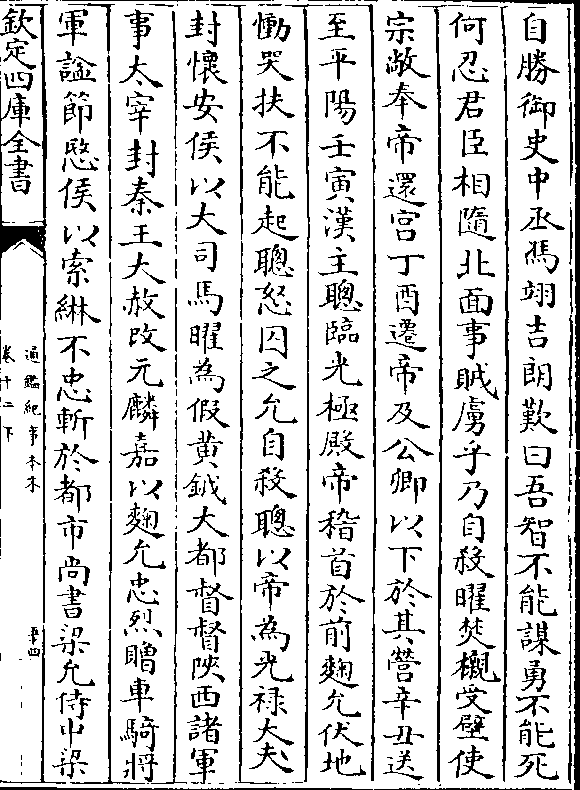 自勝御史中丞馮翊吉朗歎曰吾智不能謀勇不能死
何忍君臣相隨北面事賊虜乎乃自殺曜焚櫬受璧使
宗敞奉帝還宫丁酉遷帝及公卿以下於其營辛丑送
至平陽壬寅漢主聰臨光極殿帝稽首於前麴允伏地
慟哭扶不能起聰怒囚之允自殺聰以帝為光禄大夫
封懷安侯以大司馬曜為假黄鉞大都督督陝西諸軍
事太宰封秦王大赦改元麟嘉以麴允忠烈贈車騎將
軍諡節愍侯以索綝不忠斬於都市尚書梁允侍中梁
欽定四庫全書
通鑑紀事本末
卷十二下